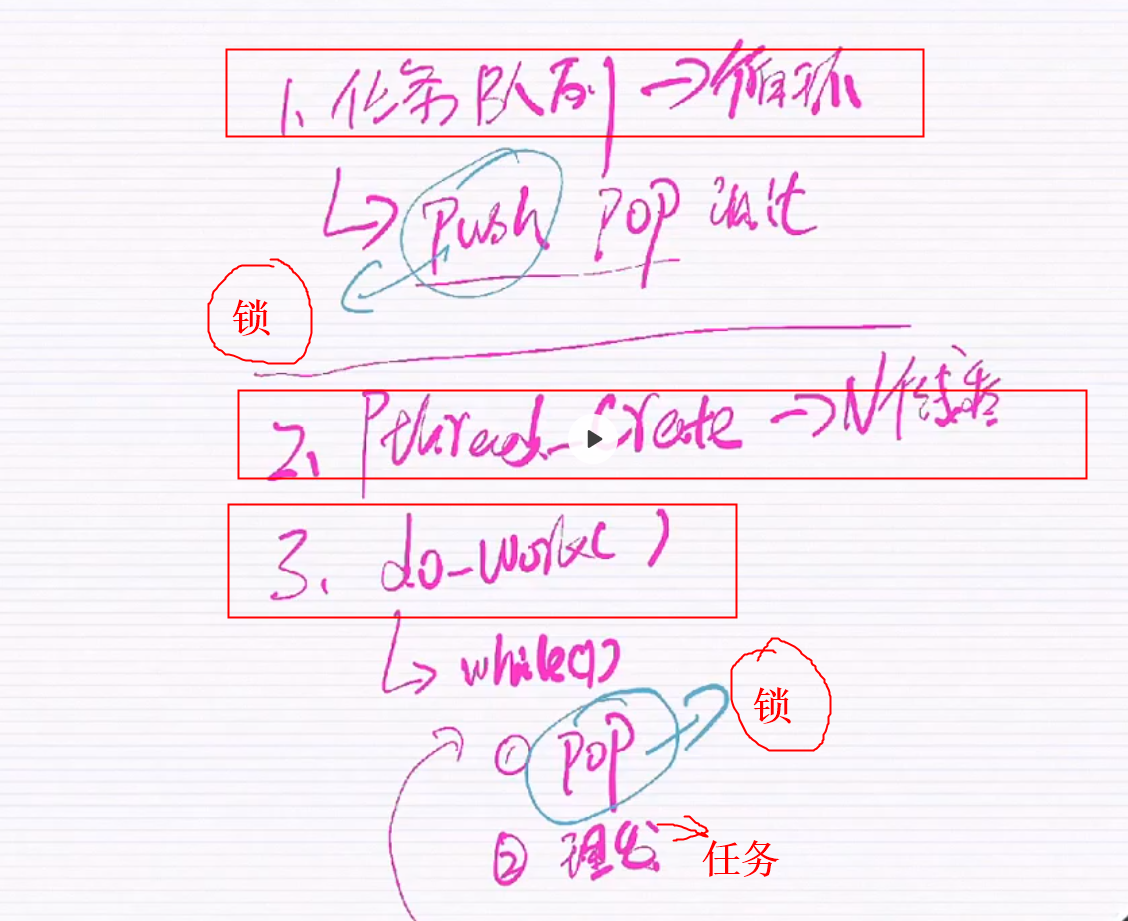 1. 任务队列 →
Push POP
锁
2. Pthread_Create → N
3. do_work()
while(1)
① POP
锁
② 理发
任务